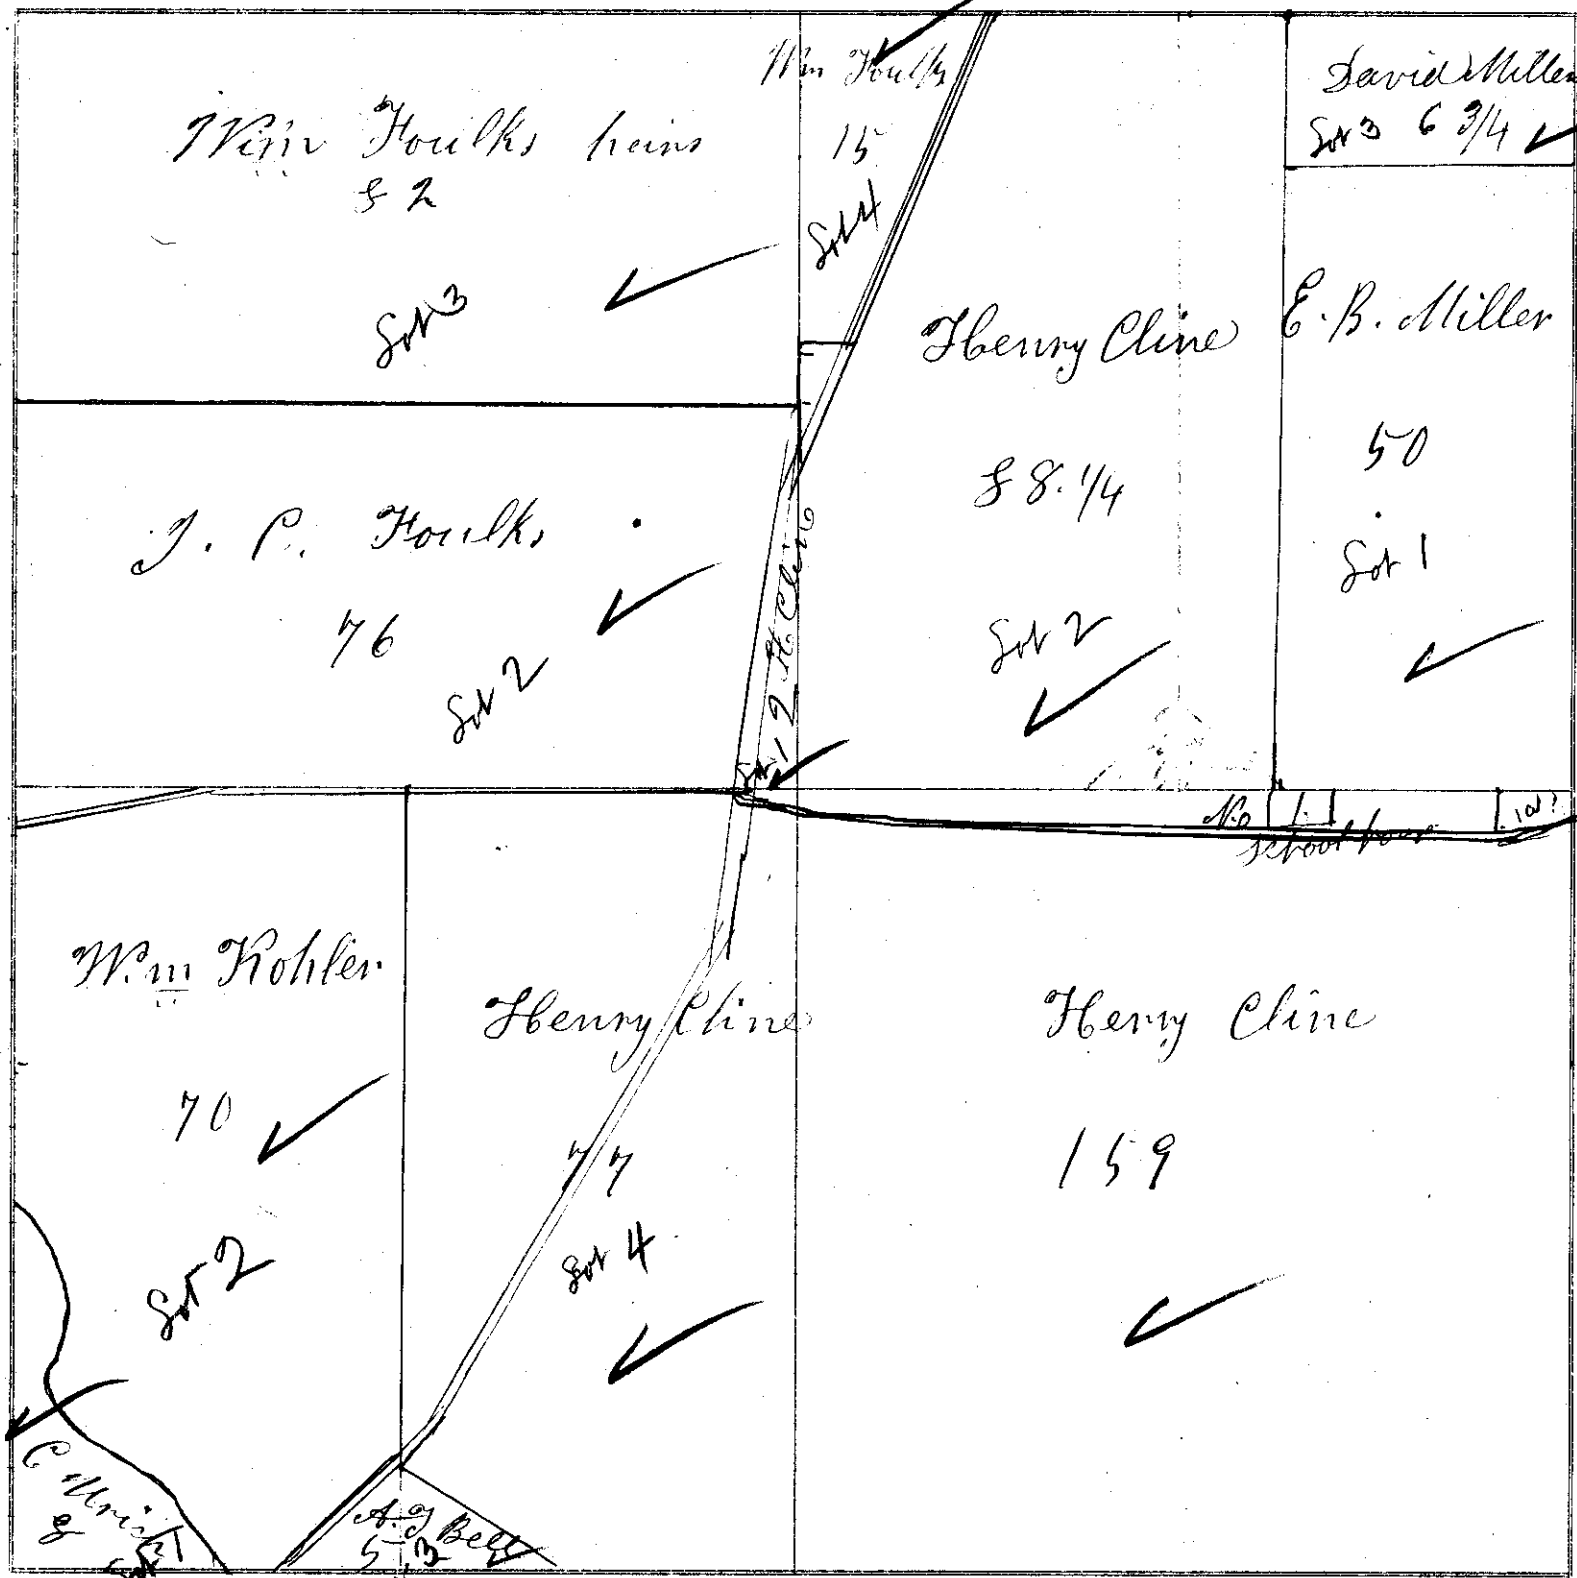 Wm Foulks heirs
82
Lot 3
Wm Foulks
15
Lot 4
David Miller
Lot 3 6 3/4
Henry Cline
88.1/4
Lot 2
E. B. Miller
50
Lot 1
J. C. Foulks
76
Lot 2
2 H. Cline
No 1
School house
Wm Kohler
70
Lot 2
Henry Cline
77
Lot 4
Henry Cline
159
C
8
A. J Bell
5